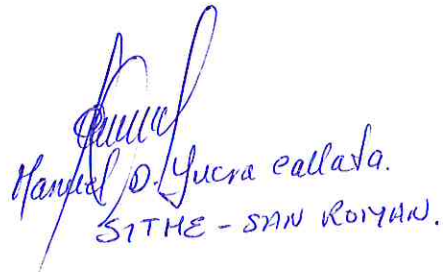 Manuel D. Yucra Callata.
SITHE - SAN ROMAN.